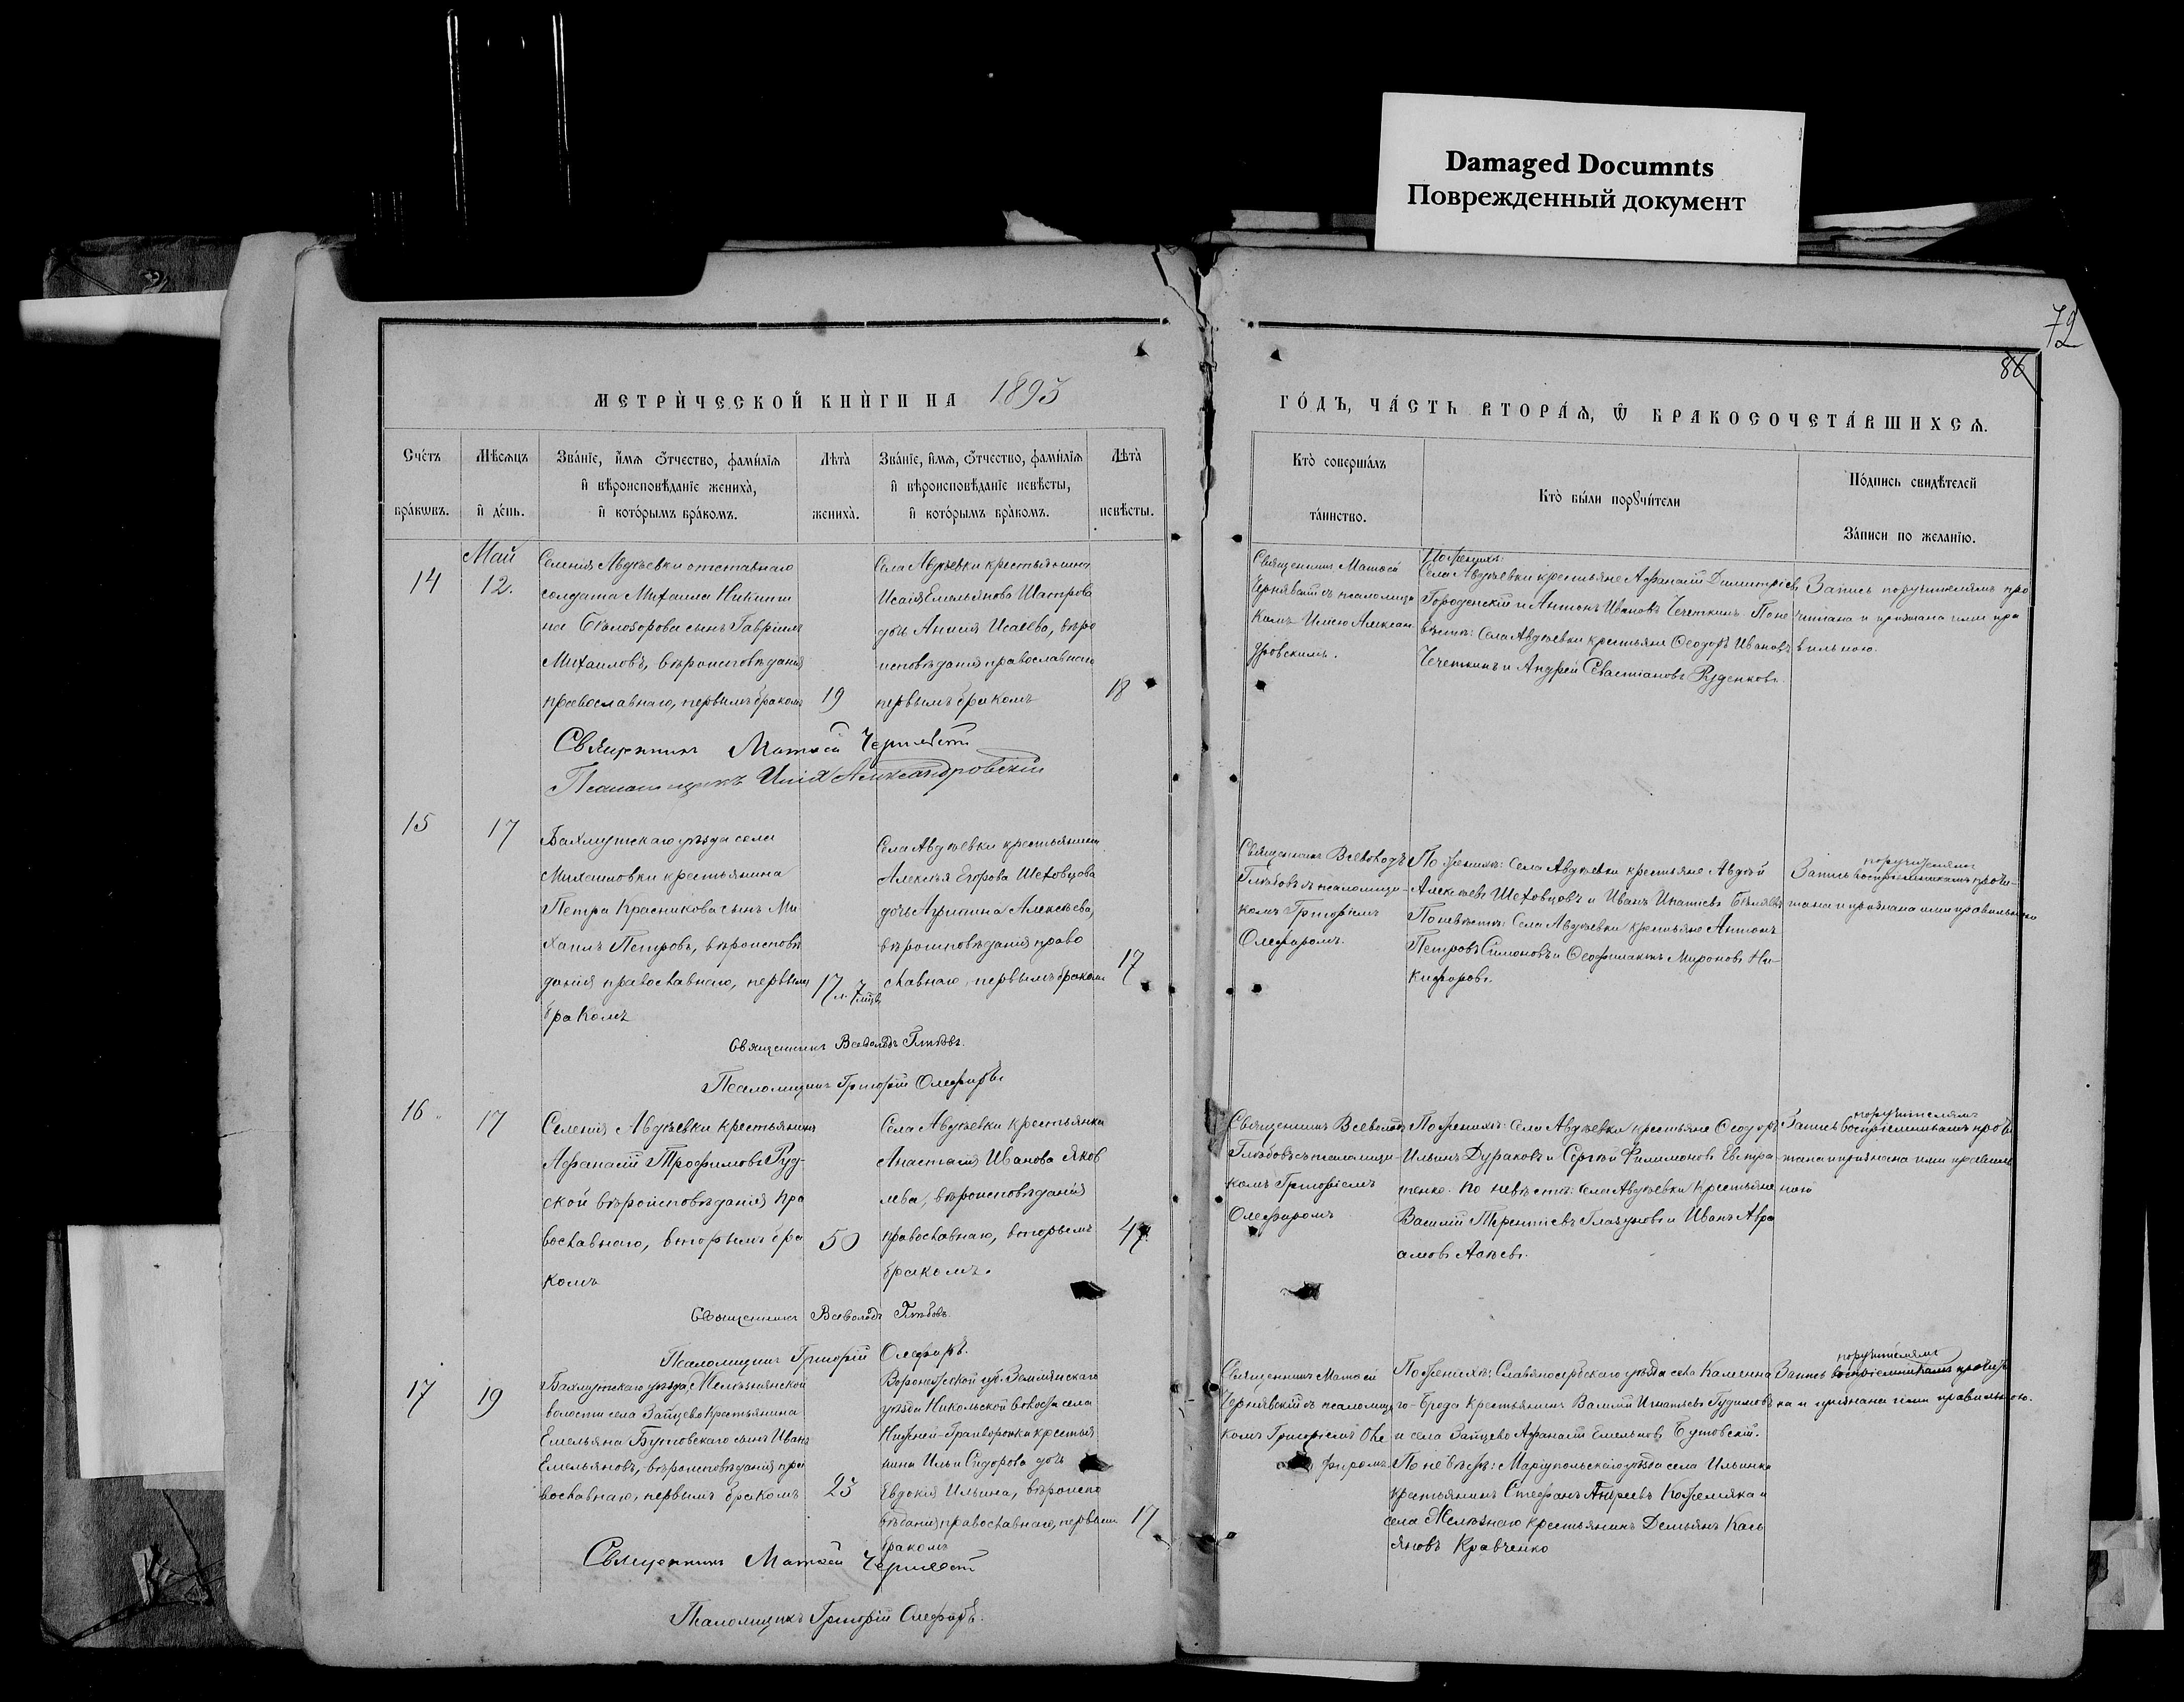 Damaged Documnts
Поврежденный документ
72
86
МЕТРИ́ЧЕСКОЙ КНИ́ГИ НА 1893
ГО́ДЪ, ЧА́СТЬ ВТОРА́Ѧ, Ѡ БРАКОСОЧЕТА́ВШИХСѦ.
Сче́тъ бра́кωвъ.
Мѣ́сѧцъ и҆ де́нь.
Зва́нїе, и҆́мѧ ѻ҆́тчество, фами́лїѧ
и҆ вѣроисповѣ́данїе жениха̀,
и҆ кото́рымъ бра́комъ.
Лѣта̀ жениха̀.
Зва́нїе, и҆́мѧ, ѻ҆́тчество, фами́лїѧ
и҆ вѣроисповѣ́данїе невѣ́сты,
и҆ кото́рымъ бра́комъ.
Лѣта̀ невѣ́сты.
Кто̀ соверша́лъ
та́инство.
Кто̀ бы́ли порꙋчи́тели
По́дпись свидѣ́телей
За́писи по жела́нїю.
14
Май
12.
Селенія Авдѣевки отставнаго
солдата Михаила Никити
на Бѣлозорова сынъ Гавріилъ
Михаиловъ, вѣроисповѣданія
православнаго, первымъ бракомъ
19
Села Авдѣевки крестьянина
Исаія Емельянова Шатрова
дочь Анисія Исаева, вѣро
исповѣданія православнаго
первымъ бракомъ
18
Священникъ Матѳей
Чернявскій съ псаломщи
комъ Иліею Алексан
дровскимъ.
По женихѣ:
Села Авдѣевки крестьяне Афанасій Димитріевъ
Городенскій и Антонъ Ивановъ Чечеткинъ. По не
вѣстѣ: Села Авдѣевки крестьяне Ѳеодоръ Ивановъ
Чечеткинъ и Андрей Севастіановъ Руденковъ.
Запись поручителямъ про
читана и признана ими пра
вильною.
Священникъ Матѳей Чернявскій
Псаломщикъ Илія Александровскій
15
17
Бахмутскаго уѣзда села
Михаиловки крестьянина
Петра Красникова сынъ Ми
хаилъ Петровъ, вѣроисповѣ
данія православнаго, первымъ
бракомъ
17 л. 7 мцвъ
Села Авдѣевки крестьянина
Алексѣя Егорова Шеховцова
дочь Агрипина Алексѣева,
вѣроисповѣданія право
славнаго, первымъ бракомъ
17
Священникъ Всеволодъ
Глѣбовъ съ псаломщи-
комъ Григоріемъ
Олефиромъ.
По женихѣ: Села Авдѣевки крестьяне Авдѣй
Алексѣевъ Шеховцовъ и Иванъ Игнатіевъ Бѣляевъ
По невѣстѣ: Села Авдѣевки крестьяне Антонъ
Петровъ Симоновъ и Ѳеофилактъ Мироновъ Ни-
кифоровъ.
поручителямъ
Запись воспріемникамъ прочи-
тана и признана ими правильною
Священникъ Всеволодъ Глѣбовъ.
Псаломщикъ Григорій Олефиръ
16
17
Селенія Авдѣевки крестьянинъ
Афанасій Трофимовъ Руд-
ской вѣроисповѣданія пра
вославнаго, вторымъ бра
комъ
50
Села Авдѣевки крестьянка
Анастасія Иванова Яков
лева, вѣроисповѣданія
православнаго, вторымъ
бракомъ.
47.
Священникъ Всеволодъ
Глѣбовъ съ псаломщи-
комъ Григоріемъ
Олефиромъ
По женихѣ: Села Авдѣевки крестьяне Ѳеодоръ
Ильинъ Дураковъ и Сергѣй Филимоновъ Евстра
тенко. По невѣстѣ: Села Авдѣевки крестьяне
Василій Терентіевъ Глазуновъ и Иванъ Авра
амовъ Асѣевъ.
поручителямъ
Запись воспріемникамъ прочи
тана и признана ими правиль
ною
Священникъ Всеволодъ Глѣбовъ.
Псаломщикъ Григорій Олефиръ.
17
19
Бахмутскаго уѣзда, Желѣзнянской
волости села Зайцево крестьянина
Емельяна Бутовскаго сынъ Иванъ
Емельяновъ, вѣроисповѣданія пра
вославнаго, первымъ бракомъ
23
Воронежской губ. Землянскаго
уѣзда Никольской волости села
Нижней-Грайворонки крестья
нина Ильи Сидорова дочь
Евдокія Ильина, вѣроиспо
вѣданія православнаго, первымъ
бракомъ
17
Священникъ Матѳей
Чернявскій съ псаломщи
комъ Григоріемъ Оле
фиромъ
По женихѣ: Славяносербскаго уѣзда села Каменна
го-Брода крестьянинъ Василій Игнатьевъ Гудимовъ
и села Зайцево Афанасій Емельяновъ Бутовскій.
По невѣстѣ: Маріупольскаго уѣзда села Ильинка
крестьянинъ Стефанъ Андреевъ Кожемяка и
села Желѣзнаго крестьянинъ Демьянъ Кась
яновъ Кравченко
поручителямъ
Запись воспріемникамъ прочита
на и признана ими правильною.
Священникъ Матѳей Чернявскій
Псаломщикъ Григорій Олефиръ.